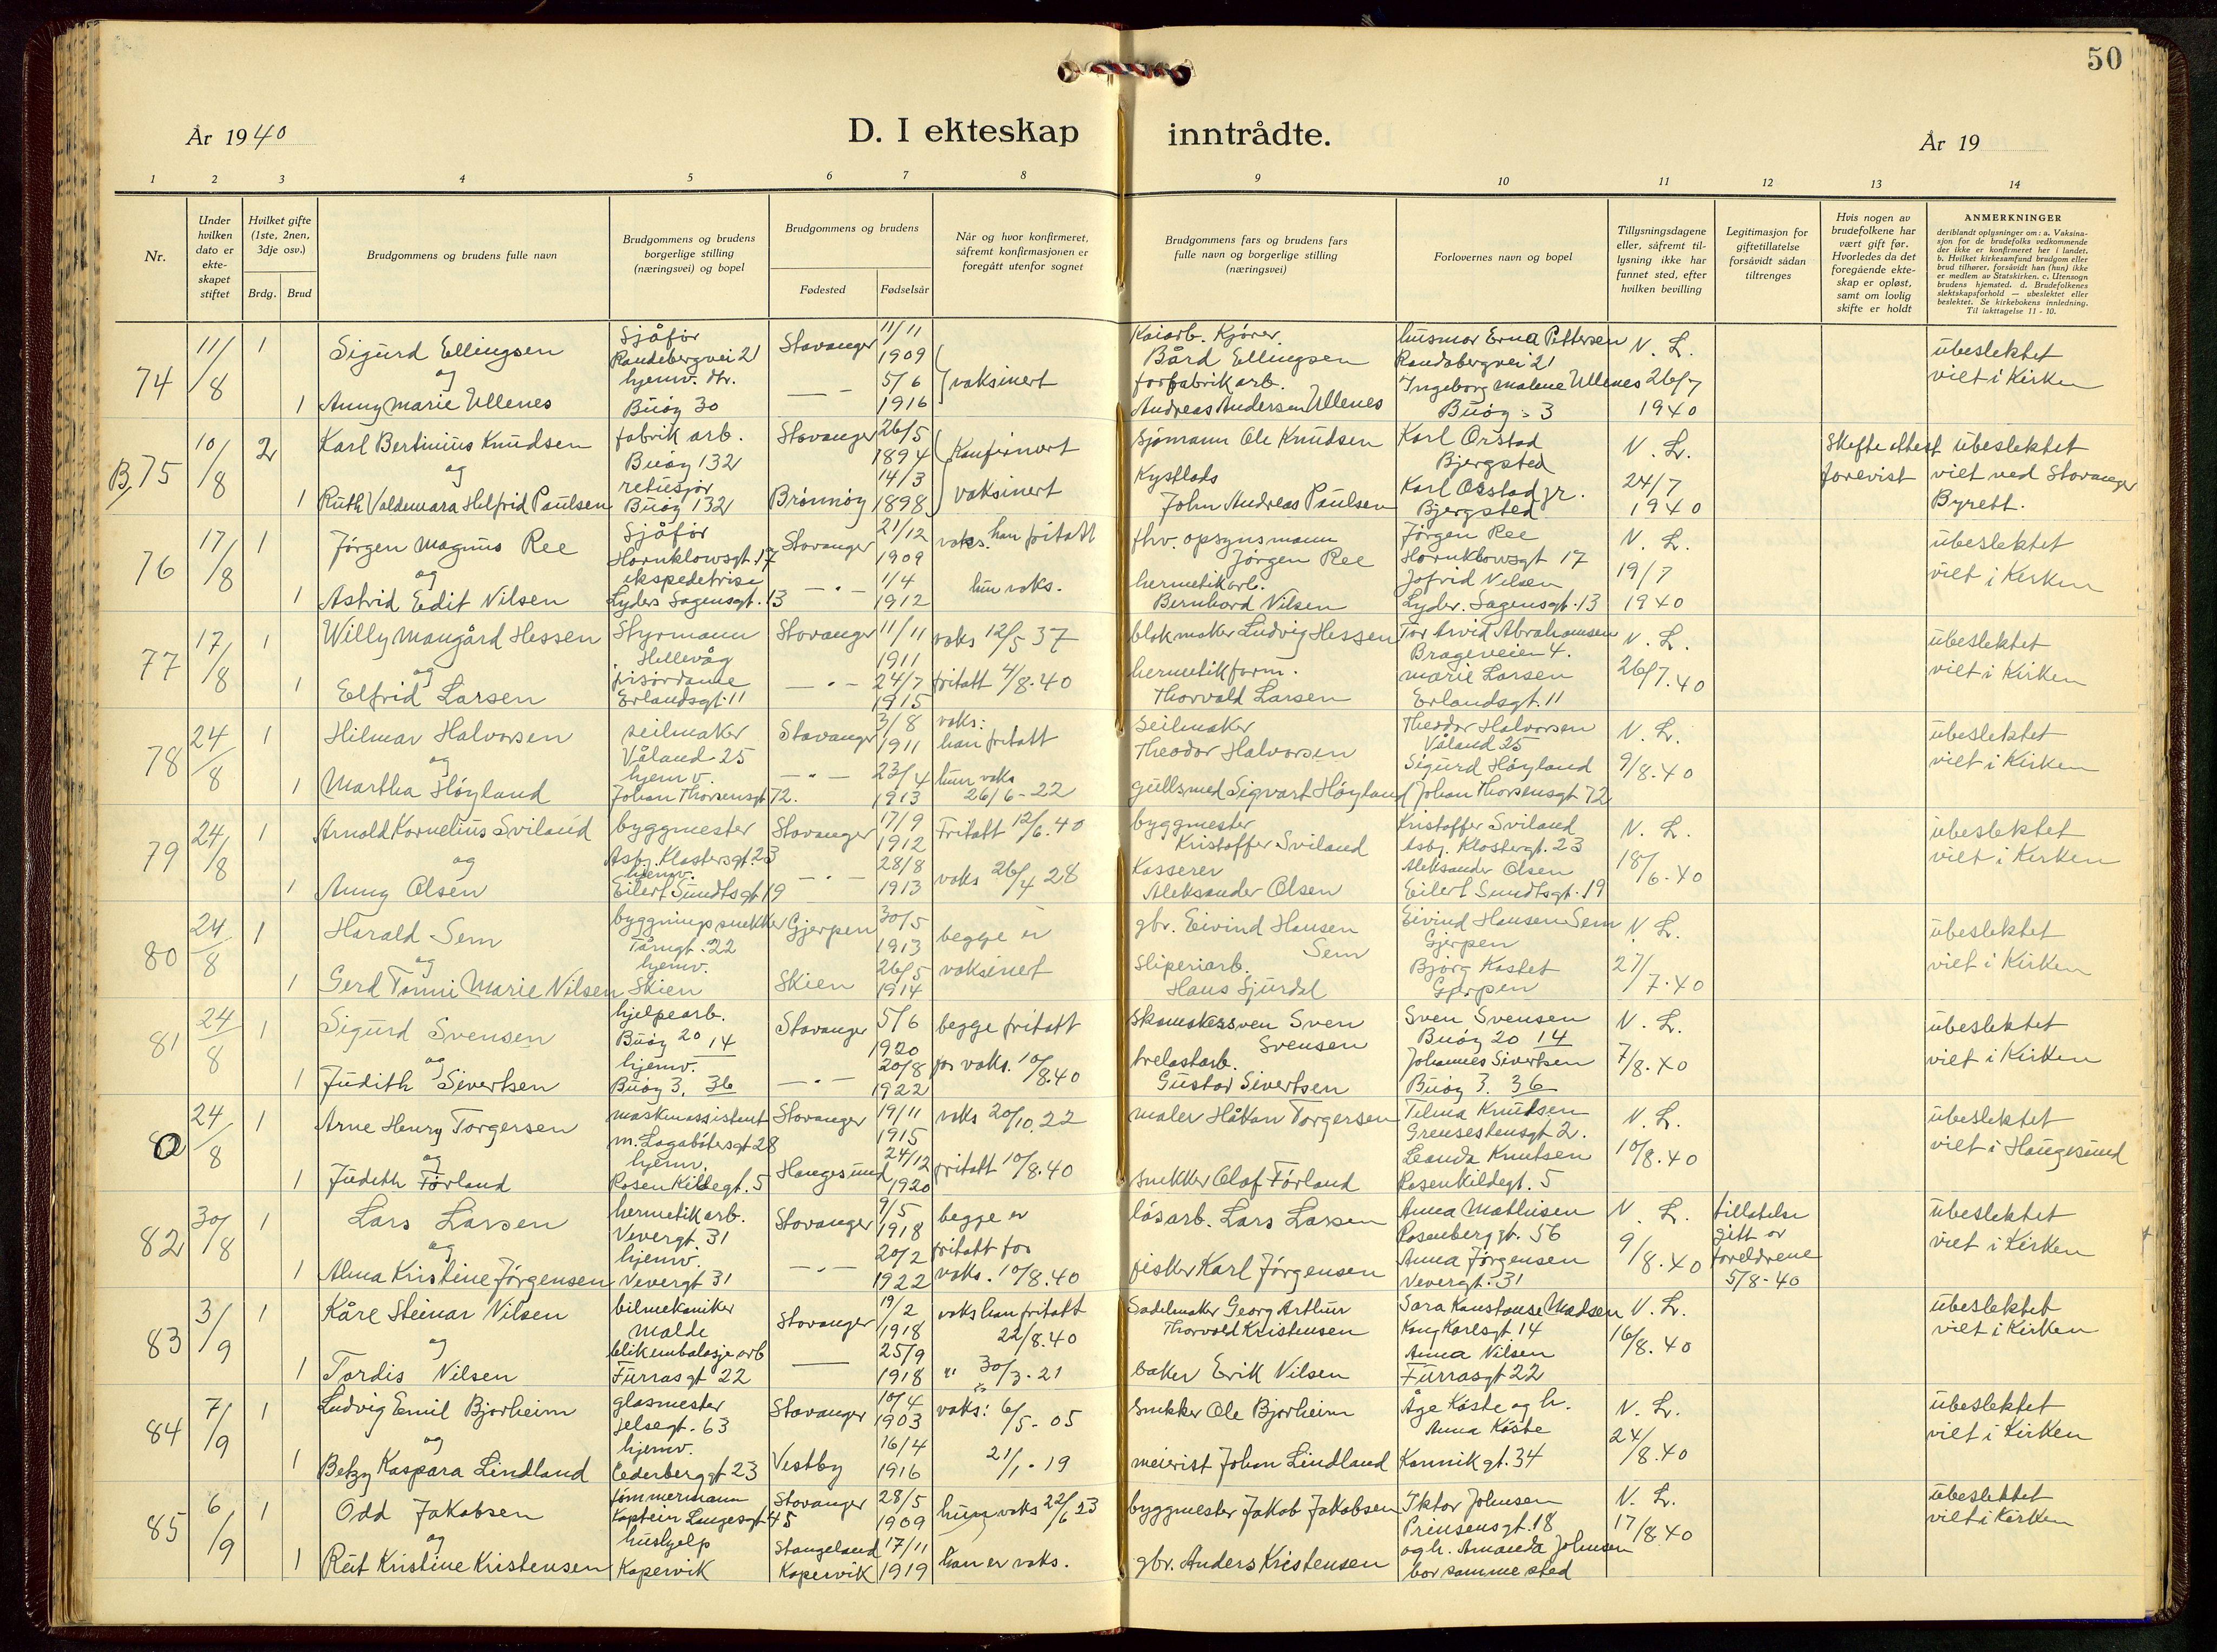 50
År 1940
D. I ekteskap inntrådte.
År 19
1 2 3 4 5 6 7 8 9 10 11 12 13 14
Nr.
Under hvilken dato er ekteskapet stiftet
Hvilket gifte (1ste, 2nen, 3dje osv.)
Brdg. Brud
Brudgommens og brudens fulle navn
Brudgommens og brudens borgerlige stilling (næringsvei) og bopel
Brudgommens og brudens
Fødested Fødselsår
Når og hvor konfirmeret, såfremt konfirmasjonen er foregått utenfor sognet
Brudgommens fars og brudens fars fulle navn og borgerlige stilling (næringsvei)
Forlovernes navn og bopel
Tillysningsdagene eller, såfremt tillysning ikke har funnet sted, efter hvilken bevilling
Legitimasjon for giftetillatelse forsåvidt sådan tiltrenges
Hvis nogen av brudefolkene har vært gift før. Hvorledes da det foregående ekteskap er opløst, samt om lovlig skifte er holdt
ANMERKNINGER
deriblandt oplysninger om: a. Vaksinasjon for de brudefolks vedkommende der ikke er konfirmeret her i landet. b. Hvilket kirkesamfund brudgom eller brud tilhører, forsåvidt han (hun) ikke er medlem av Statskirken. c. Utensogn brudens hjemsted. d. Brudefolkenes slektskapsforhold — ubeslektet eller beslektet. Se kirkebokens innledning. Til iakttagelse 11 - 10.
74 11/8 1 Sigurd Ellingsen Sjåfør Randabergvei 21 Stavanger 11/11 1909 vaksinert Kaiarb. Kjører. Bård Ellingsen husmor Erna Pettersen Randabergvei 21 N. L. 26/7 1940 ubeslektet viet i Kirken
og
1 Anny Marie Ullenes hjemv. dtr. Buøy 30 — 5/6 1916 forfabrikarb. Andreas Andersen Ullenes Ingeborg Malene Ullenes Buøy 3
B, 75 10/8 2 Karl Bertinius Knudsen fabrik arb. Buøy 132 Stavanger 26/5 1894 Konfirmert Sjømann Ole Knudsen Karl Orstad Bjergsted N. L. 24/7 1940 Skifte attest forevist ubeslektet viet ved Stavanger Byrett.
og
1 Ruth Valdemara Helfrid Paulsen retusjør Buøy 132 Brønnøy 14/3 1898 vaksinert Kystlods John Andreas Paulsen Karl Orstad jr. Bjergsted
76 17/8 1 Jørgen Magnus Ree Sjåfør Hornklowsgt. 17 Stavanger 21/12 1909 vaks. han fritatt fhv. opsynsmann Jørgen Ree Jørgen Ree Hornklowsgt 17 N. L. 19/7 1940 ubeslektet viet i Kirken
og
1 Astrid Edit Nilsen ekspedetrise Lyders Sagensgt. 13 — " — 1/4 1912 hun vaks. hermetikarb. Bernhard Nilsen Jofrid Nilsen Lyder. Sagensgt. 13
77 17/8 1 Willy Maugård Hessen Styrmann Hillevåg Stavanger 11/11 1911 vaks 12/5 37 blokmaker Ludvig Hessen Tor Arvid Abrahamsen Brageveien 4. N. L. 26/7.40 ubeslektet viet i Kirken
og
1 Elfrid Larsen frisørdame Erlandsgt. 11 — " — 24/7 1915 fritatt 4/8.40 hermetikform. Thorvald Larsen Marie Larsen Erlandsgt. 11
78 24/8 1 Hilmar Halvorsen seilmaker Våland 25 Stavanger 3/8 1911 vaks: han fritatt Seilmaker Theodor Halvorsen Theodor Halvorsen Våland 25 N. L. 9/8.40 ubeslektet viet i Kirken
og
1 Martha Høyland hjemv. Johan Thorsensgt 72. — " — 23/4 1913 hun vaks 26/6 - 22 gullsmed Sigvart Høyland Sigurd Høyland Johan Thorsensgt 72
79 24/8 1 Arnold Kornelius Sviland byggmester Asbj. Klostersgt. 23 Stavanger 17/9 1912 Fritatt 12/6.40 byggmester Kristoffer Sviland Kristoffer Sviland Asbj. Klostergt. 23 N. L. 18/6.40 ubeslektet viet i Kirken
og
1 Anny Olsen hjemv. Eilert Sundtsgt 19 — " — 28/8 1913 vaks 26/4 28 Kasserer Aleksander Olsen Aleksander Olsen Eilert Sundtsgt. 19
80 24/8 1 Harald Sem byggningssnekker Tårngt. 22 Gjerpen 30/5 1913 begge er vaksinet gbr. Eivind Hansen Sem Eivind Hansen Sem Gjerpen N. L. 27/7.40 ubeslektet viet i Kirken
og
1 Gerd Tonni Marie Nilsen hjemv. Skien Skien 26/5 1914 Sliperiarb. Hans Sjurdal Bjørg Kastet Gjerpen
81 24/8 1 Sigurd Svensen hjelpearb. Buøy 20 14 Stavanger 5/6 1920 begge fritatt for vaks. 10/8.40 Skomakersven Sven Svensen Sven Svensen Buøy 20 14 N. L. 7/8.40 ubeslektet viet i Kirken
og
1 Judith Sivertsen hjemv. Buøy 3. 36 — " — 20/8 1922 trelastarb. Gustav Sivertsen Johannes Sivertsen Buøy 3. 36
24/8 1 Arne Henry Torgersen maskinassistent M. Lagabøtersgt 28 Stavanger 19/11 1915 vaks 20/10.22 maler Håkon Torgersen Telma Knudsen Grensestensgt 2. N. L. 10/8.40 ubeslektet viet i Haugesund
og
1 Judith Førland hjemv. Rosenkildegt. 5 Haugesund 24/12 1920 fritatt 10/8.40 Snekker Olaf Førland Leanda Knutsen Rosenkildegt. 5
82 30/8 1 Lars Larsen hermetikarb. Vevergt 31 Stavanger 9/5 1918 begge er fritatt for vaks. 10/8.40 låsarb. Lars Larsen Anna Mathisen Rosenberggt. 56 N. L. 9/8.40 tillatelse gitt av foreldrene 5/8-40 ubeslektet viet i Kirken
og
1 Alma Kristine Jørgensen hjemv. Vevergt 31 — " — 20/2 1922 fisker Karl Jørgensen Anna Jørgensen Vevergt. 31
83 3/9 1 Kåre Steinar Nilsen bilmekaniker Malde Stavanger 19/2 1918 vaks han fritatt 22/8.40 Sadelmaker Georg Arthur Thorvald Kristensen Sara Konstanse Madsen Kong Karlsgt. 14 N. L. 16/8.40 ubeslektet viet i Kirken
og
1 Tordis Nilsen blikembalasje arb Furrasgt 22 — 25/9 1918 " 30/3.21 baker Erik Nilsen Anna Nilsen Furrasgt 22
84 7/9 1 Ludvig Emil Bjorheim glasmester Jelsegt. 63 Stavanger 10/4 1903 vaks: 6/5 - 05 Snekker Ole Bjorheim Åge Køste og h. Anna Køste N. L. 24/8.40 ubeslektet viet i Kirken
og
1 Betzy Kaspara Lindland hjemv. Cederberggt 23 Vestby 16/4 1916 21/1 - 19 meierist Johan Lindland Kannikgt. 34
85 6/9 1 Odd Jakobsen tømmermann Kaptein Langesgt 45 Stavanger 28/5 1909 hun vaks 22/6 23 byggmester Jakob Jakobsen Iktor Johnsen Prinsensgt. 18 N. L. 17/8.40 ubeslektet viet i Kirken
og
1 Rut Kristine Kristensen hushjelp Kopervik Stangeland Kopervik 17/11 1919 han er vaks. gbr. Anders Kristensen og h. Amanda Johnsen bor samme sted